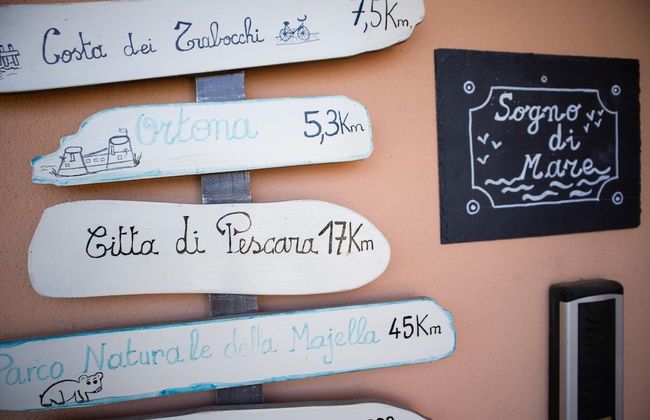 Costa dei Trabocchi 7,5Km
Ortona 5,3Km
Citta di Pescara 17Km
Parco Naturale della Majella 45Km
Sogno
di
Mare